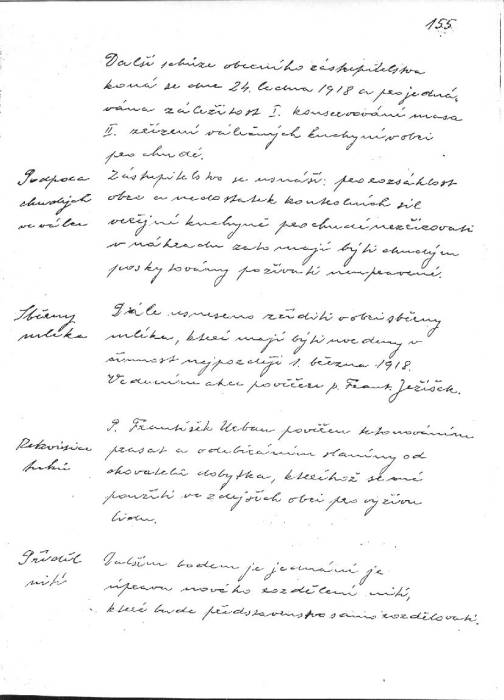 155.
Další schůze obecního zastupitelstva
koná se dne 24. ledna 1918 a projedná-
vána záležitost I. konservování masa
II. zřízení válečných kuchyní v obci
pro chudé.
Podpora
chudých
ve válce
Zastupitelstvo se usnáší: pro rozsáhlost
obce a nedostatek kontrolních sil
veřejné kuchyně pro chudé nezřizovati
v náhradu zato mají býti chudým
poskytovány poživatiny nepravené.
Sběrny
mléka
Dále usneseno zříditi v obci sběrny
mléka, které mají býti uvedeny v
činnost nejpozději 1. března 1918.
Vedením akce pověřen p. Frant. Ježíšek.
Rekvisice
tuků
P. František Urban pověřen
prasat a odebíráním slaniny od
chovatelů dobytka, kteréhož se má
použíti ve zdejších obci pro výživu
lidu.
Příděl
nití
Dalším bodem je jednání je
úprava nového rozdělení nití,
které bude představenstvo samo rozdělovati.